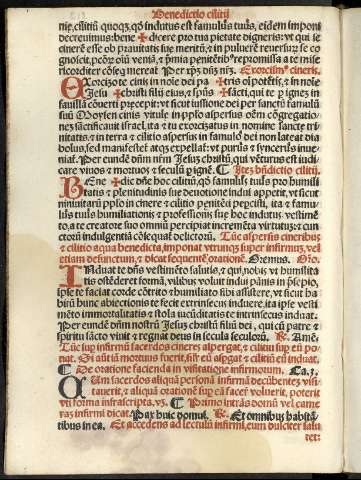 Benedictio cilitii
nie, cilitiū quoqz, qͦ indutus est famulus tuus, eidem imponi
decreuimus: bene ✠ dicere pro tua pietate digneris: vt qui se
cinerē esse ob prauitatis sue meritū, & in puluerē reuersuꝝ se co
gnoscit, pctōꝝ oīū veniā, & p̄mia penitētib⁹ repromissa a te mise
ricorditer cōseq̄ mereat̄. Per xp̄m dn̄m nr̄m. Exorcism⁹ cineris.
EXorcizo te cinis in noīe dei pa ✠ tris oīpotētis, & in noīe
Jesu ✠ christi filij eius, & sp̄ūs ✠ sācti, qui te p ignez in
fauillā cōuerti p̄cepit: vt sicut iussione dei per sanctū famulū
suū Moysen cinis vitule in pplo aspersus oēm cōgregatio-
nez sanctificauit israel, ita & tu exorcizatus in nomine sancte tri-
nitatis: & in terra & cilitio aspersus in famulo dei non lateat dia
bolus, sed manifestat⁹ atqz expellat: vt purus & syncerus inue-
niat̄. Per eundē dn̄m nr̄m Jesum christū, qui vēturus est iudi
care viuos & mortuos & seculū p ignē. Itez bn̄dictio cilitij.
BEne ✠ dic dn̄e hoc cilitiū, qͦ famulus tuus pro humili
tatis & plenitudinis sue deuotione indui appetit, vt sicut
niniuitarū pplo in cinere & cilitio penitēti pepcisti, ita & famu-
lus tuus humiliationis & professionis sue hoc indutus vestimē
to, a te creatore suo omniū percipiat incremēta virtutuz: & cun
ctorū indulgentiā cōsequat̄ delictorū. Tūc aspersis cineribus
& cilitio aqua benedicta, imponat vtrunqz super infirmuz, vel
etiam defunctum, & dicat sequentē orationē. Oremus. Orō.
INduat te dn̄s vestimēto salutis, & qui, nobis vt humilita
tis ostēderet formā, vilibus voluit indui pānis in p̄sepio,
ipse te faciat corde cōtrito & humiliato sibi assistere, vt sicut ha
bitū hunc abiectionis te fecit extrinsecus induere, ita ipse vesti-
mēto immortalitatis & stola iucūditatis te intrinsecus induat.
Per eundē dn̄m nostrū Jesus christū filiū dei, qui cū patre &
spiritu sācto viuit & regnat deus in secula seculorū. R. Amē.
Tūc sup infirmū sacerdos cineres aspergat, & cilitiū sup eū po-
nat. Qͥ autū mortuus fuerit, sil̄r eū aspgat & cilitiū eū induat.
De oratione facienda in visitatione infirmorum. Ca. 3.
QUum sacerdos aliquā personā infirmā decūbentez visi-
tauerit, & aliquā orationē sup eā facef voluerit, poterit
vti forma infrascripta, vz. Primo intrās domū vel came-
raz infirmi dicat. Pax huic domui. R. Et omnibus habitā-
tibus in ea. Et accedens ad lectulū infirmi, eum dulciter salu
tet: